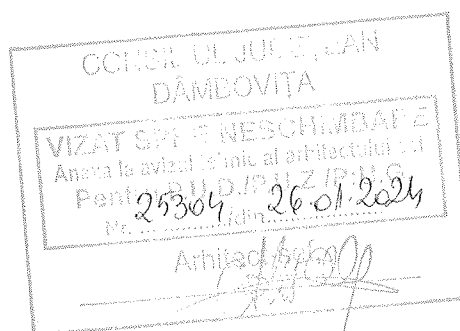 CONSILIUL JUDEȚEAN
DÂMBOVIȚA
VIZAT SPRE NESCHIMBARE
Anexa la avizul tehnic al arhitectului șef
Pentru P.U.D./P.U.Z./P.U.G.
Nr. 25304 /din 26.01.2024
Arhitect